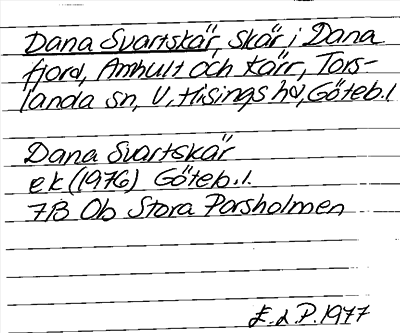 Dana Svartskär, skär i Dana
fjord, Amhult och Kärr, Tors-
landa sn, V. Hisings hd, Göteb. l
Dana Svartskär
ek (1976) Göteb. l.
7B Ob Stora Porsholmen
E. d. P. 1977